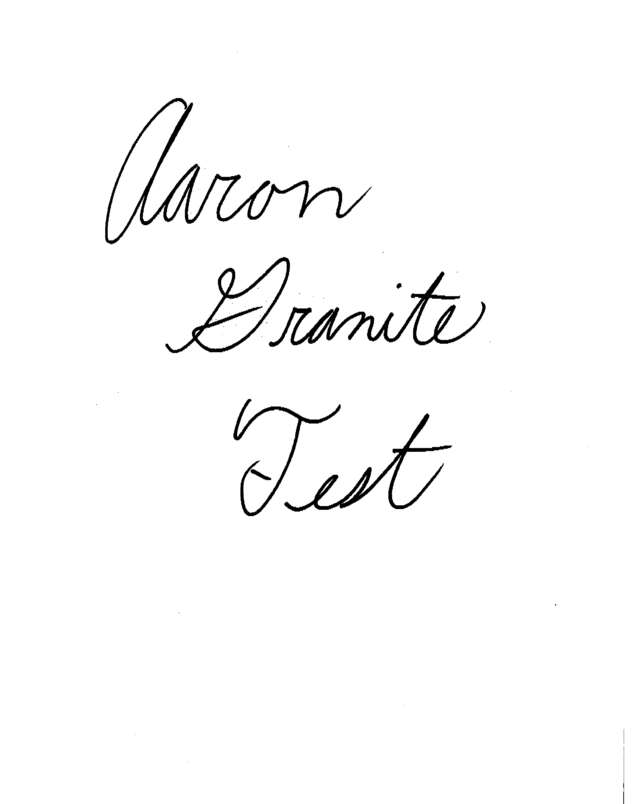 Aaron
Granite
Test